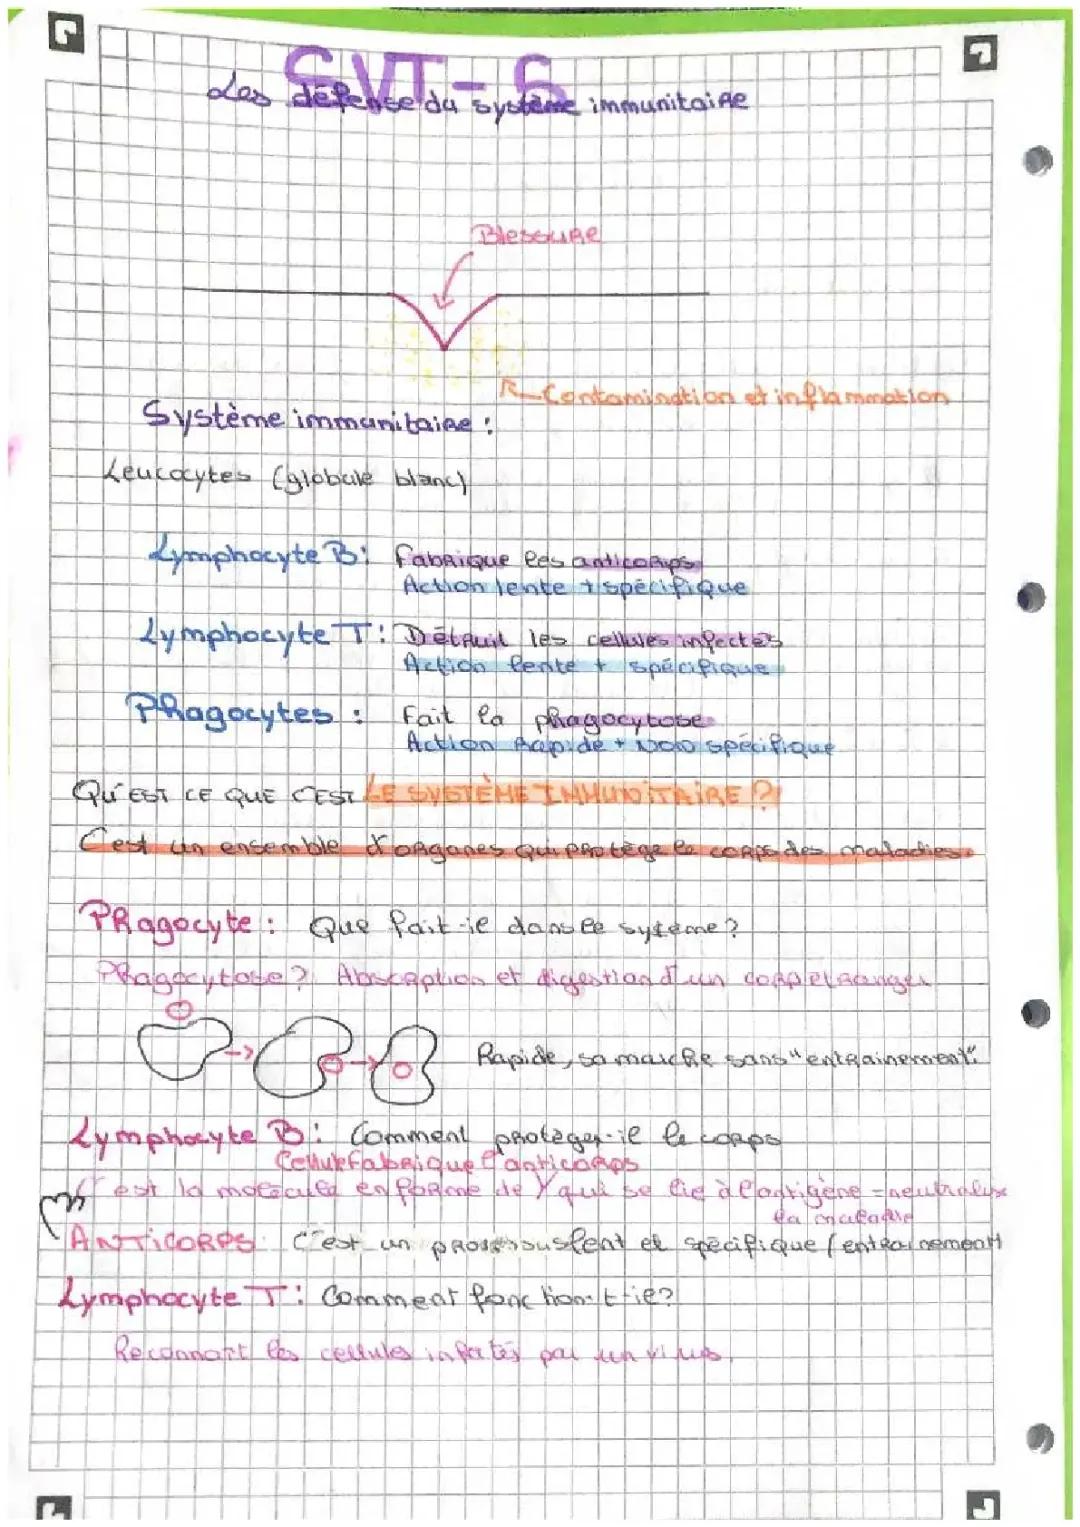 SVT-6
Les défense du système immunitaire
Blessure
Contamination et inflammation
Système immunitaire :
Leucocytes (globule blanc)
Lymphocyte B: Fabrique les anticorps
Action lente + spécifique
Lymphocyte T: Détruit les cellules infectés
Action lente + spécifique
Phagocytes : Fait la phagocytose
Action Rapide + NON spécifique
QU'EST CE QUE C'EST LE SYSTÈME IMMUNITAIRE ?
C'est un ensemble d'organes qui protège le corps des maladies.
Phagocyte : Que fait-ie dans le sytème?
Phagocytose? Absorption et digestion d'un corp etranger
Rapide, sa marche sans "entrainement".
Lymphocyte B: Comment protèger-ie le corps
Cellule fabrique l'anticorps
C'est la molécule en forme de Y qui se lie à l'antigène = neutralise
la maladie
ANTICORPS: C'est un lent et spécifique (entrainement)
Lymphocyte T: Comment fonction-t-ie?
Reconnait les cellules infectés par un virus.